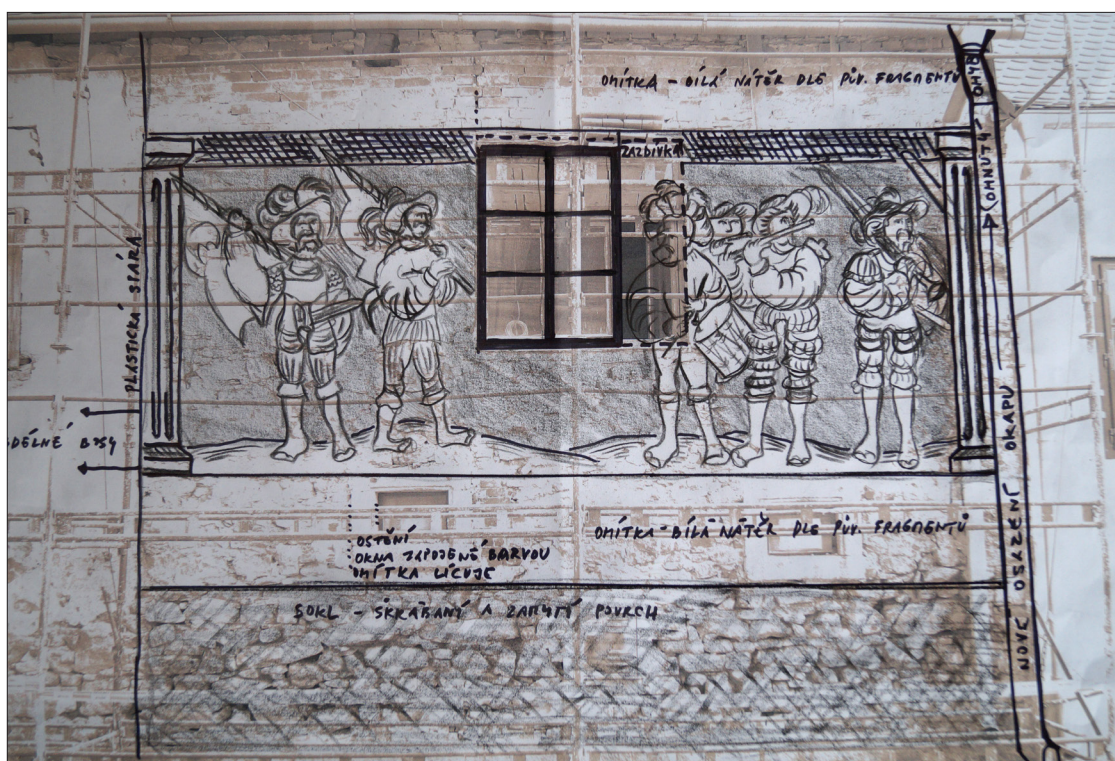 OMÍTKA - BÍLÁ NÁTĚR DLE PŮV. FRAGMENTŮ
ZAZDÍVKA
PLASTICKÁ SPÁRA
OSTĚNÍ
OKNA ZAPOJENÉ BARVOU
OMÍTKA LÍCUJE
OMÍTKA - BÍLÁ NÁTĚR DLE PŮV. FRAGMENTŮ
SOKL - ŠKRÁBANÝ A ZAMYTÝ POVRCH
NOVÉ OSAZENÍ OKAPU